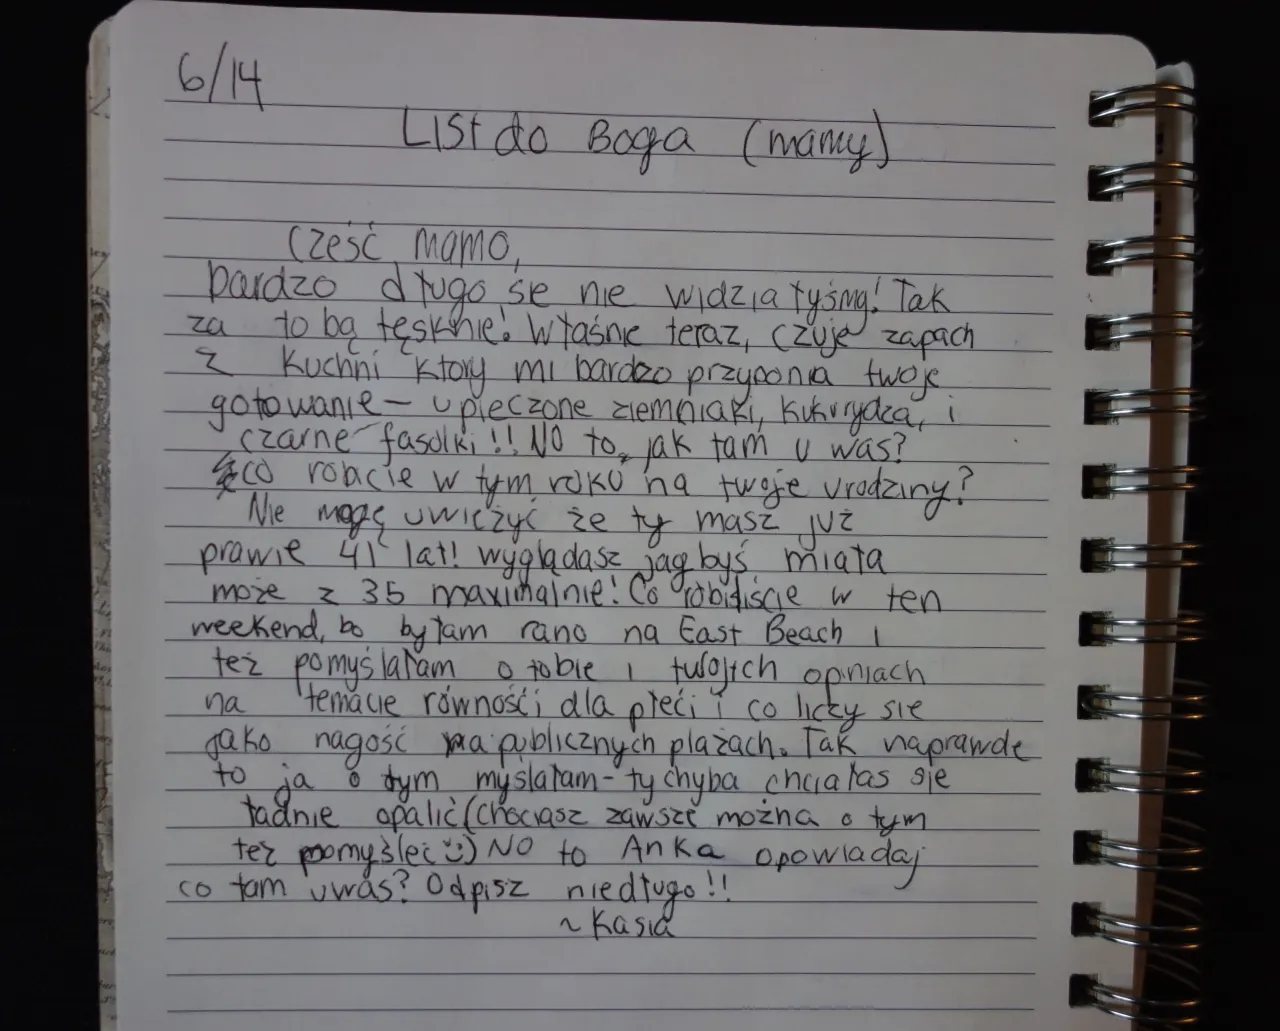 6/14
List do Boga (mamy)
Cześć mamo,
bardzo długo se nie widziałyśmy! Tak
za tobą tęsknie! Właśnie teraz, czuje zapach
z kuchni ktory mi bardzo przypomia twoje
gotowanie – upieczone ziemniaki, kukurydza, i
czarne fasolki!! No to, jak tam u was?
co robicie w tym roku na twoje urodziny?
Nie mogę uwiezyć że ty masz już
prawie 41 lat! wyglądasz jagbyś miała
może z 35 maximalnie! Co robiliście w ten
weekend, bo byłam rano na East Beach i
też pomyślałam o tobie i twojich opiniach
na temacie równośći dla płeći i co liczy sie
jako nagość na publicznych plażach. Tak naprawde
to ja o tym myślałam – ty chyba chciałas sie
ładnie opalić (chociasz zawsze można o tym
też pomyśleć ☺) No to Anka opowiadaj
co tam uwas? Odpisz niedługo!!
~ Kasia